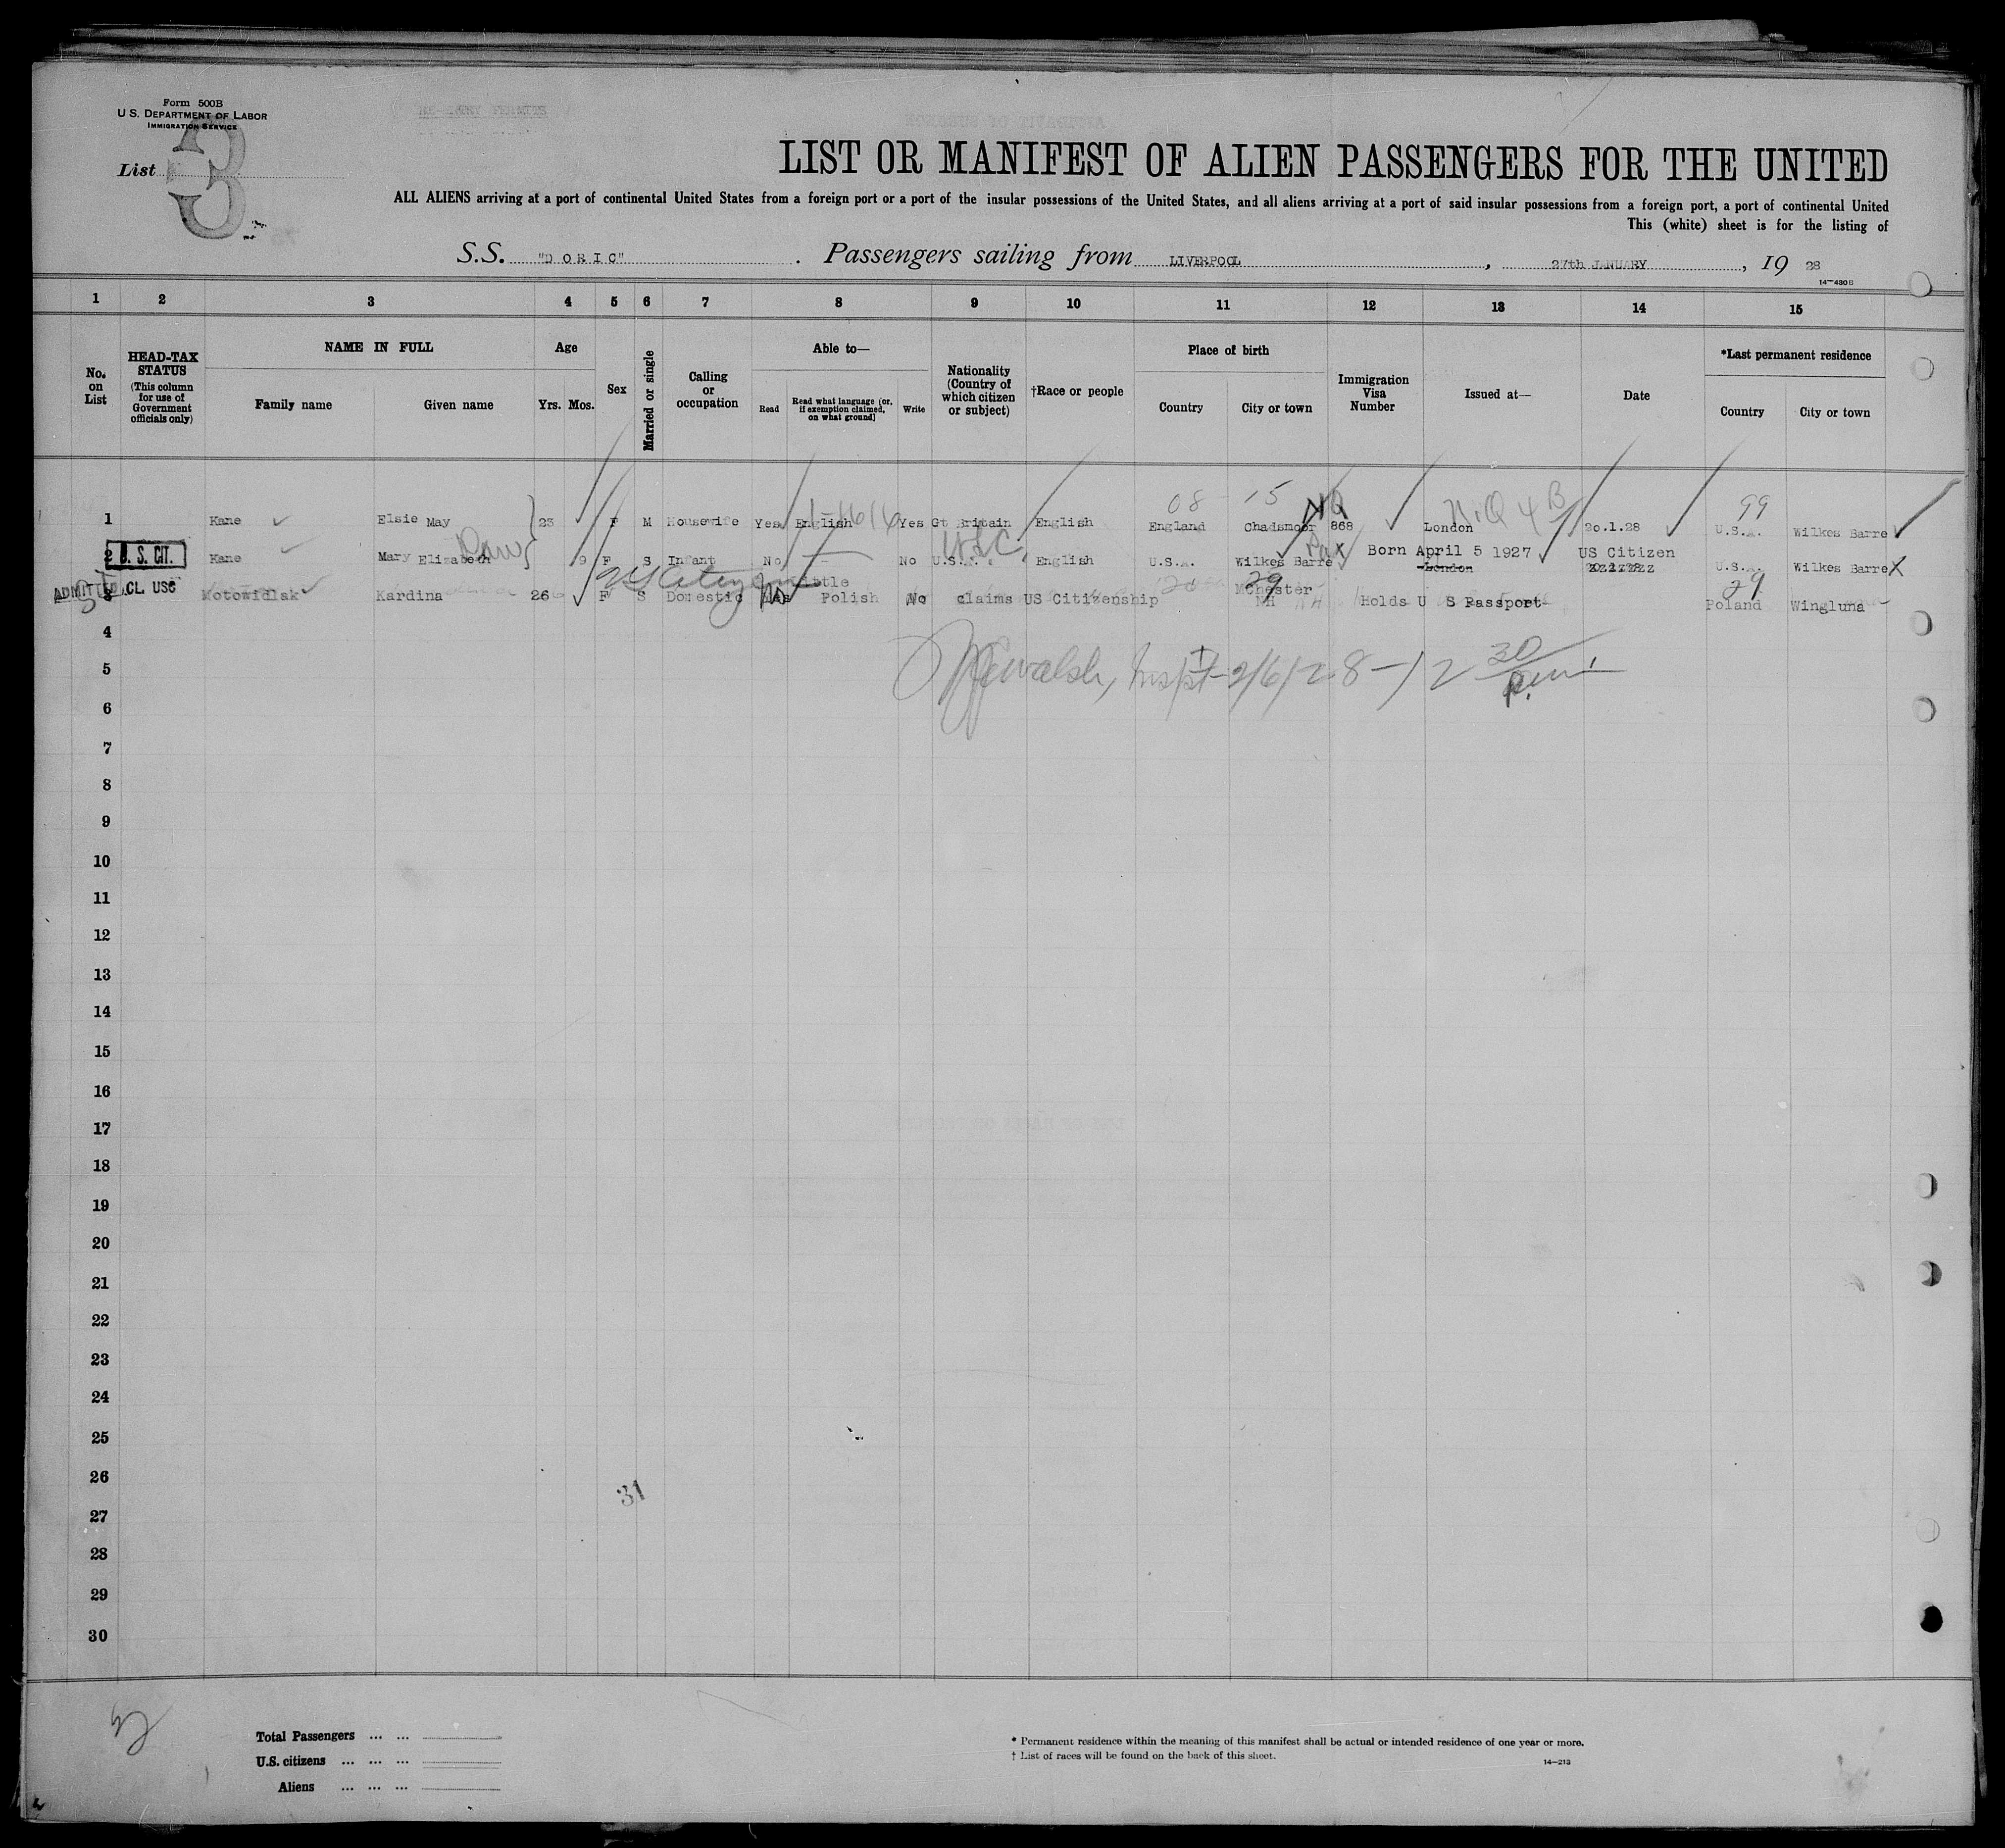 Form 500B
U.S. DEPARTMENT OF LABOR
IMMIGRATION SERVICE
List 3
LIST OR MANIFEST OF ALIEN PASSENGERS FOR THE UNITED
ALL ALIENS arriving at a port of continental United States from a foreign port or a port of the insular possessions of the United States, and all aliens arriving at a port of said insular possessions from a foreign port, a port of continental United
This (white) sheet is for the listing of
S.S. "DORIC" . Passengers sailing from LIVERPOOL , 27th JANUARY , 19 28
14-430B
1 2 3 4 5 6 7 8 9 10 11 12 13 14 15
No. on List
HEAD-TAX STATUS (This column for use of Government officials only)
NAME IN FULL
Family name Given name
Age
Yrs. Mos.
Sex
Married or single
Calling or occupation
Able to—
Read
Read what language [or, if exemption claimed, on what ground]
Write
Nationality (Country of which citizen or subject)
†Race or people
Place of birth
Country City or town
Immigration Visa Number
Issued at—
Date
*Last permanent residence
Country City or town
08 15 NQ N.Q 4 B 99
1 Kane Elsie May 23 F M Housewife Yes English Yes Gt Britain English England Chadsmoor 868 London 20.1.28 U.S.A. Wilkes Barre
USC
2 U.S. CIT. Kane Mary Elizabeth 9 F S Infant No — No U.S.A. English U.S.A. Wilkes Barre Born April 5 1927 US Citizen U.S.A. Wilkes Barre X
London
US Citizen little 29 29
ADMITTED CL. USC Motowidlak Kardina 26 F S Domestic No Polish No claims US Citizenship Mchester NH Holds U S Passport Poland Wingluna
4
Walsh, Inspt-2/6/28-12 30 p.m.
5
6
7
8
9
10
11
12
13
14
15
16
17
18
19
20
21
22
23
24
25
26
31
27
28
29
30
Total Passengers ... ...
U.S. citizens ... ... ...
Aliens ... ... ...
* Permanent residence within the meaning of this manifest shall be actual or intended residence of one year or more.
† List of races will be found on the back of this sheet.
14-213